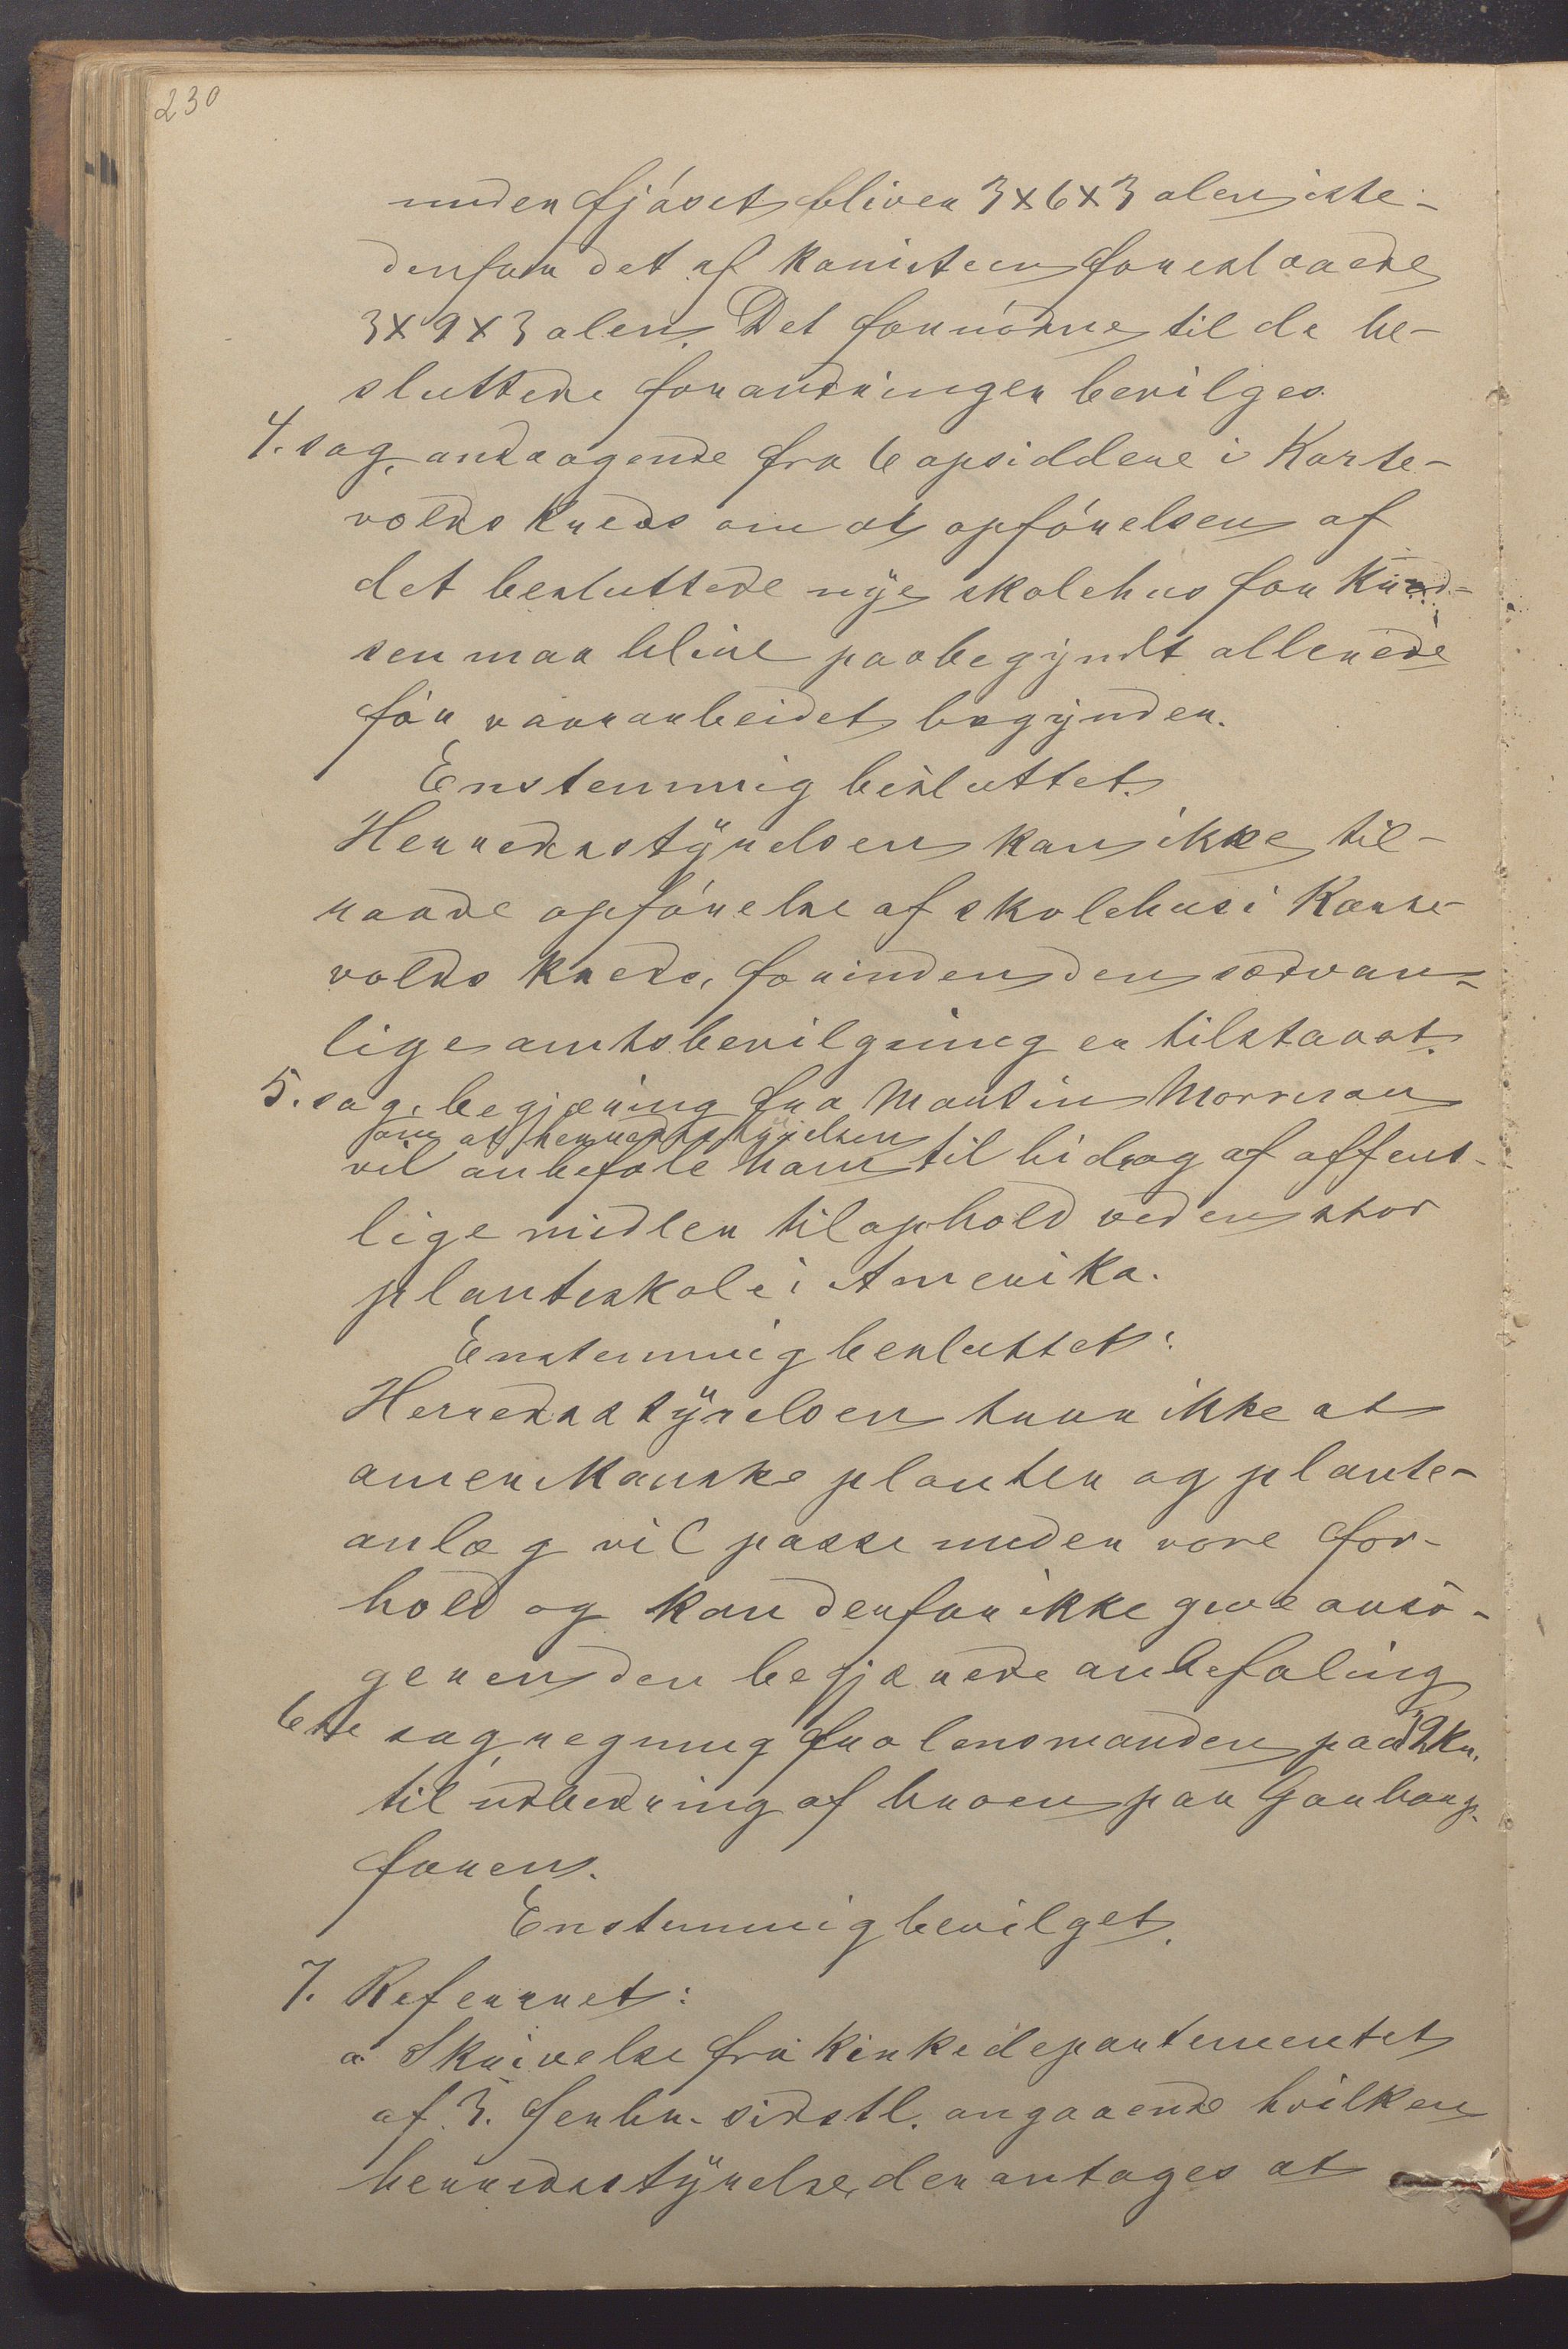 230
under fjöset bliver 3x6x3 alen iste-
denfor det af komiteen foreslaaede
3x9x3 alen. Det fornödne til de be-
sluttede forandringer bevilges.
4. sag, andragende fra 6 opsiddere i Karse-
volds kreds om at opförelsen af
det besluttede nye skolehus for Kred-
sen maa blive paabegyndt allerede
för vaararbeidet begynder.
Enstemmig besluttet.
Herredsstyrelsen kan ikke til-
raade opförelse af skolehus i Karse-
volds kreds, forinden den sædvan-
lige amtsbevilgning er tilstaaet.
5. sag, begjæring fra Martin Morvran
om at herredsstyrelsen
vil anbefale ham til bidrag af offent-
lige midler til ophold ved en stor
planteskole i Amerika.
Enstemmig besluttet:
Herredsstyrelsen tror ikke at
amerikanske planter og plante-
anlæg vil passe under vore for-
hold og kan derfor ikke give ansö-
geren den begjærede anbefaling
6te sag, regning fra lensmanden paa 12 kr.
til udbedring af broen paa Gauhaug-
foren.
Enstemmig bevilget.
7. Refereret:
a Skrivelse fra Kirkedepartementet
af 3. febr. sidstl. angaaende hvilken
herredsstyrelse, der antages at